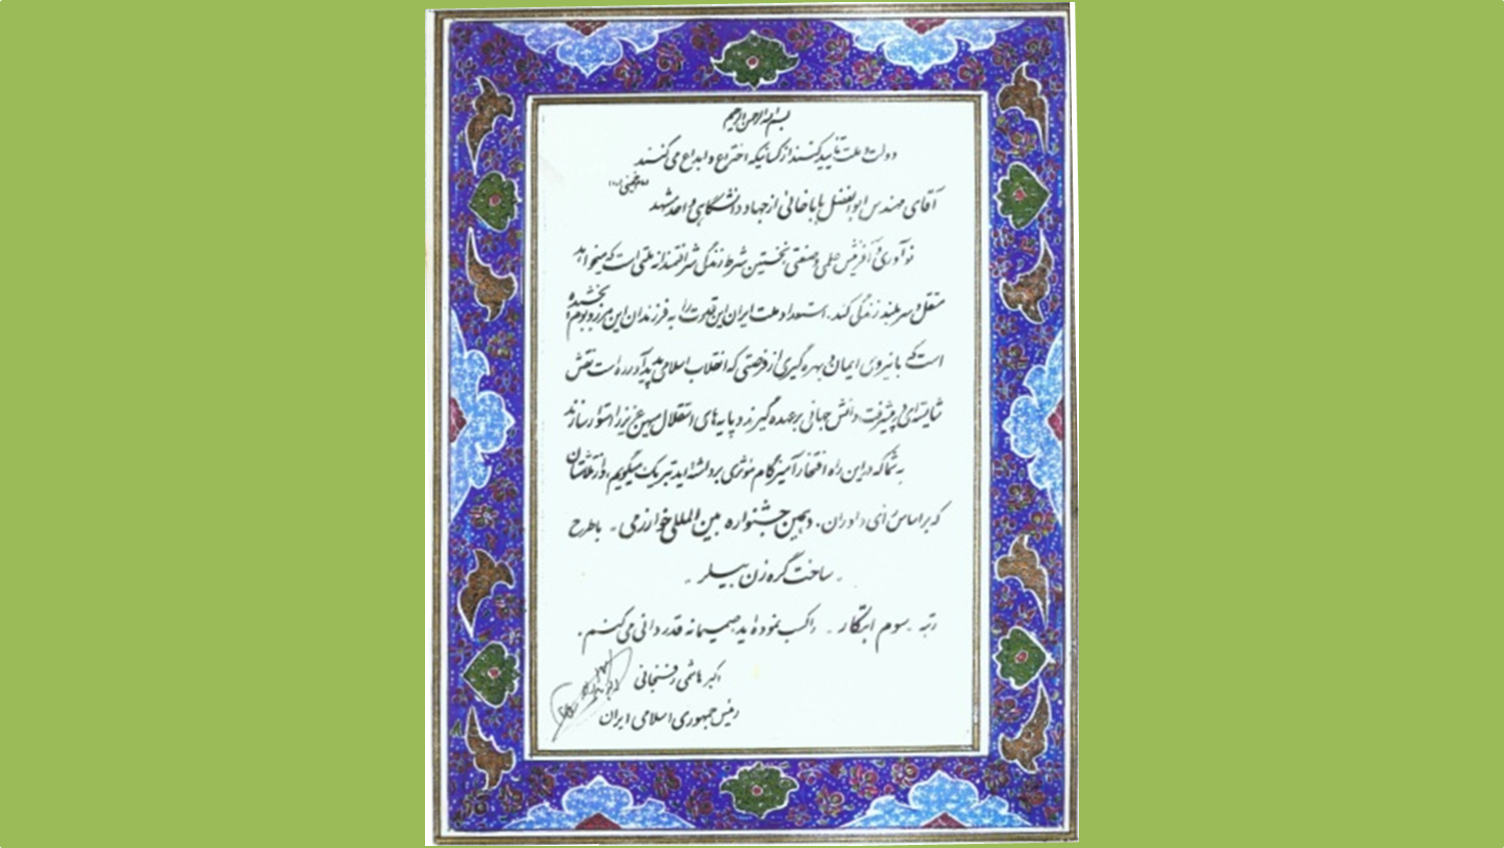 بسم الله الرحمن الرحیم
دولت و ملت تأیید کنند از کسانیکه اختراع و ابداع می کنند
امام خمینی (ره)
آقای مهندس ابوالفضل باباخانی از جهاد دانشگاهی واحد مشهد
نوآوری و آفرینش علمی و صنعتی نخستین شرط زندگی شرافتمندانه ملتی است که میخواهد
مستقل و سربلند زندگی کند. استعداد ملت ایران این قدرت را به فرزندان این مرز و بوم بخشیده
است که با نیروی ایمان و بهره گیری از فرصتی که انقلاب اسلامی پدید آورده است نقش
شایسته ای در پیشرفت دانش جهانی برعهده گیرند و پایه های استقلال میهن عزیز را استوار سازند
به شما که در این راه افتخارآمیز گام موثری برداشته اید تبریک میگویم، و از تلاشتان
که بر اساس رأی داوران. دهمین جشنواره بین المللی خوارزمی - با طرح
- ساخت گره زن بیلر -
رتبه - سوم ابتکار - را کسب نموده اید صمیمانه قدردانی می کنم.
اکبر هاشمی رفسنجانی
رئیس جمهوری اسلامی ایران